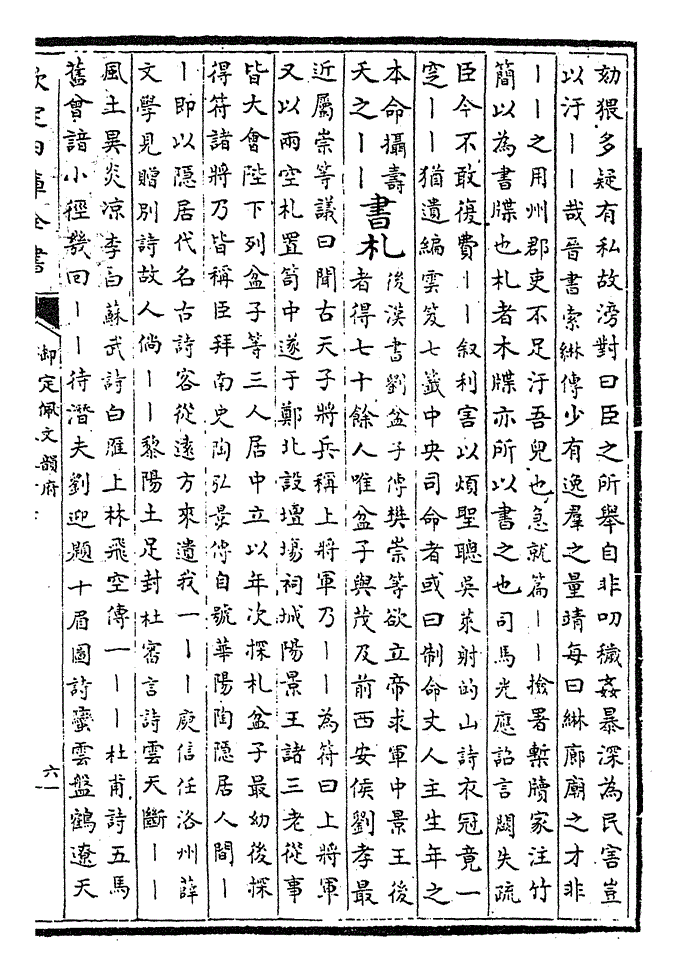 劾猥多疑有私故滂對曰臣之所舉自非叨穢姦暴深為民害豈
以汙丨丨哉晉書索綝傳少有逸羣之量靖每曰綝廊廟之才非
丨丨之用州郡吏不足汙吾兒也急就篇丨丨撿署槧牘家注竹
簡以為書牒也札者木牒亦所以書之也司馬光應詔言闕失疏
臣今不敢復費丨丨叙利害以煩聖聰吳萊射的山詩衣冠竟一
穸丨丨猶遺編雲笈七籤中央司命者或曰制命丈人主生年之
本命攝壽
天之丨丨
書札
後漢書劉盆子傳樊崇等欲立帝求軍中景王後
者得七十餘人唯盆子與茂及前西安侯劉孝最
近屬崇等議曰聞古天子將兵稱上將軍乃丨丨為符曰上將軍
又以兩空札置笥中遂于鄭北設壇塲祠城陽景王諸三老從事
皆大會陛下列盆子等三人居中立以年次探札盆子最幼後探
得符諸將乃皆稱臣拜南史陶弘景傳自號華陽陶隱居人間丨
丨即以隱居代名古詩客從遠方來遺我一丨丨庾信任洛州薛
文學見贈别詩故人倘丨丨黎陽土足封杜審言詩雲天斷丨丨
風土異炎涼李白蘇武詩白雁上林飛空傳一丨丨杜甫詩五馬
舊曾諳小徑幾回丨丨待潛夫劉迎題十眉圖詩蠻雲盤鶴遼天
欽定四庫全書
御定佩文韻府
六一